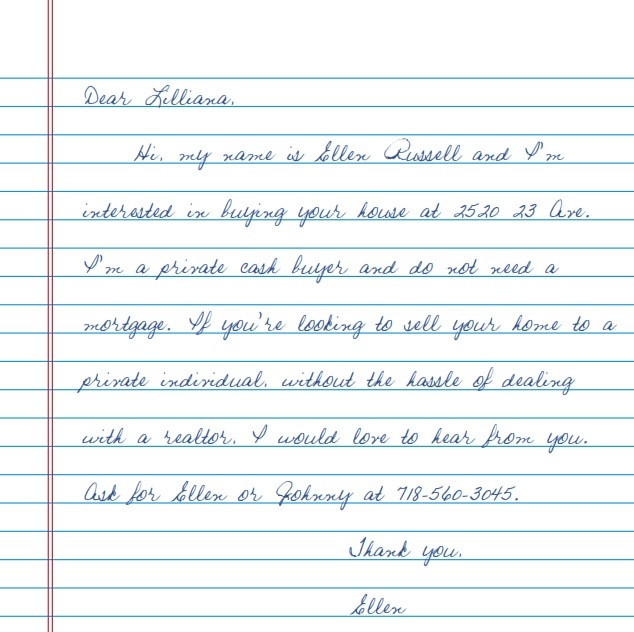 Dear Lilliana,
Hi, my name is Ellen Russell and I'm
interested in buying your house at 2520 23 Ave.
I'm a private cash buyer and do not need a
mortgage. If you're looking to sell your home to a
private individual, without the hassle of dealing
with a realtor, I would love to hear from you.
Ask for Ellen or Johnny at 718-560-3045.
Thank you,
Ellen